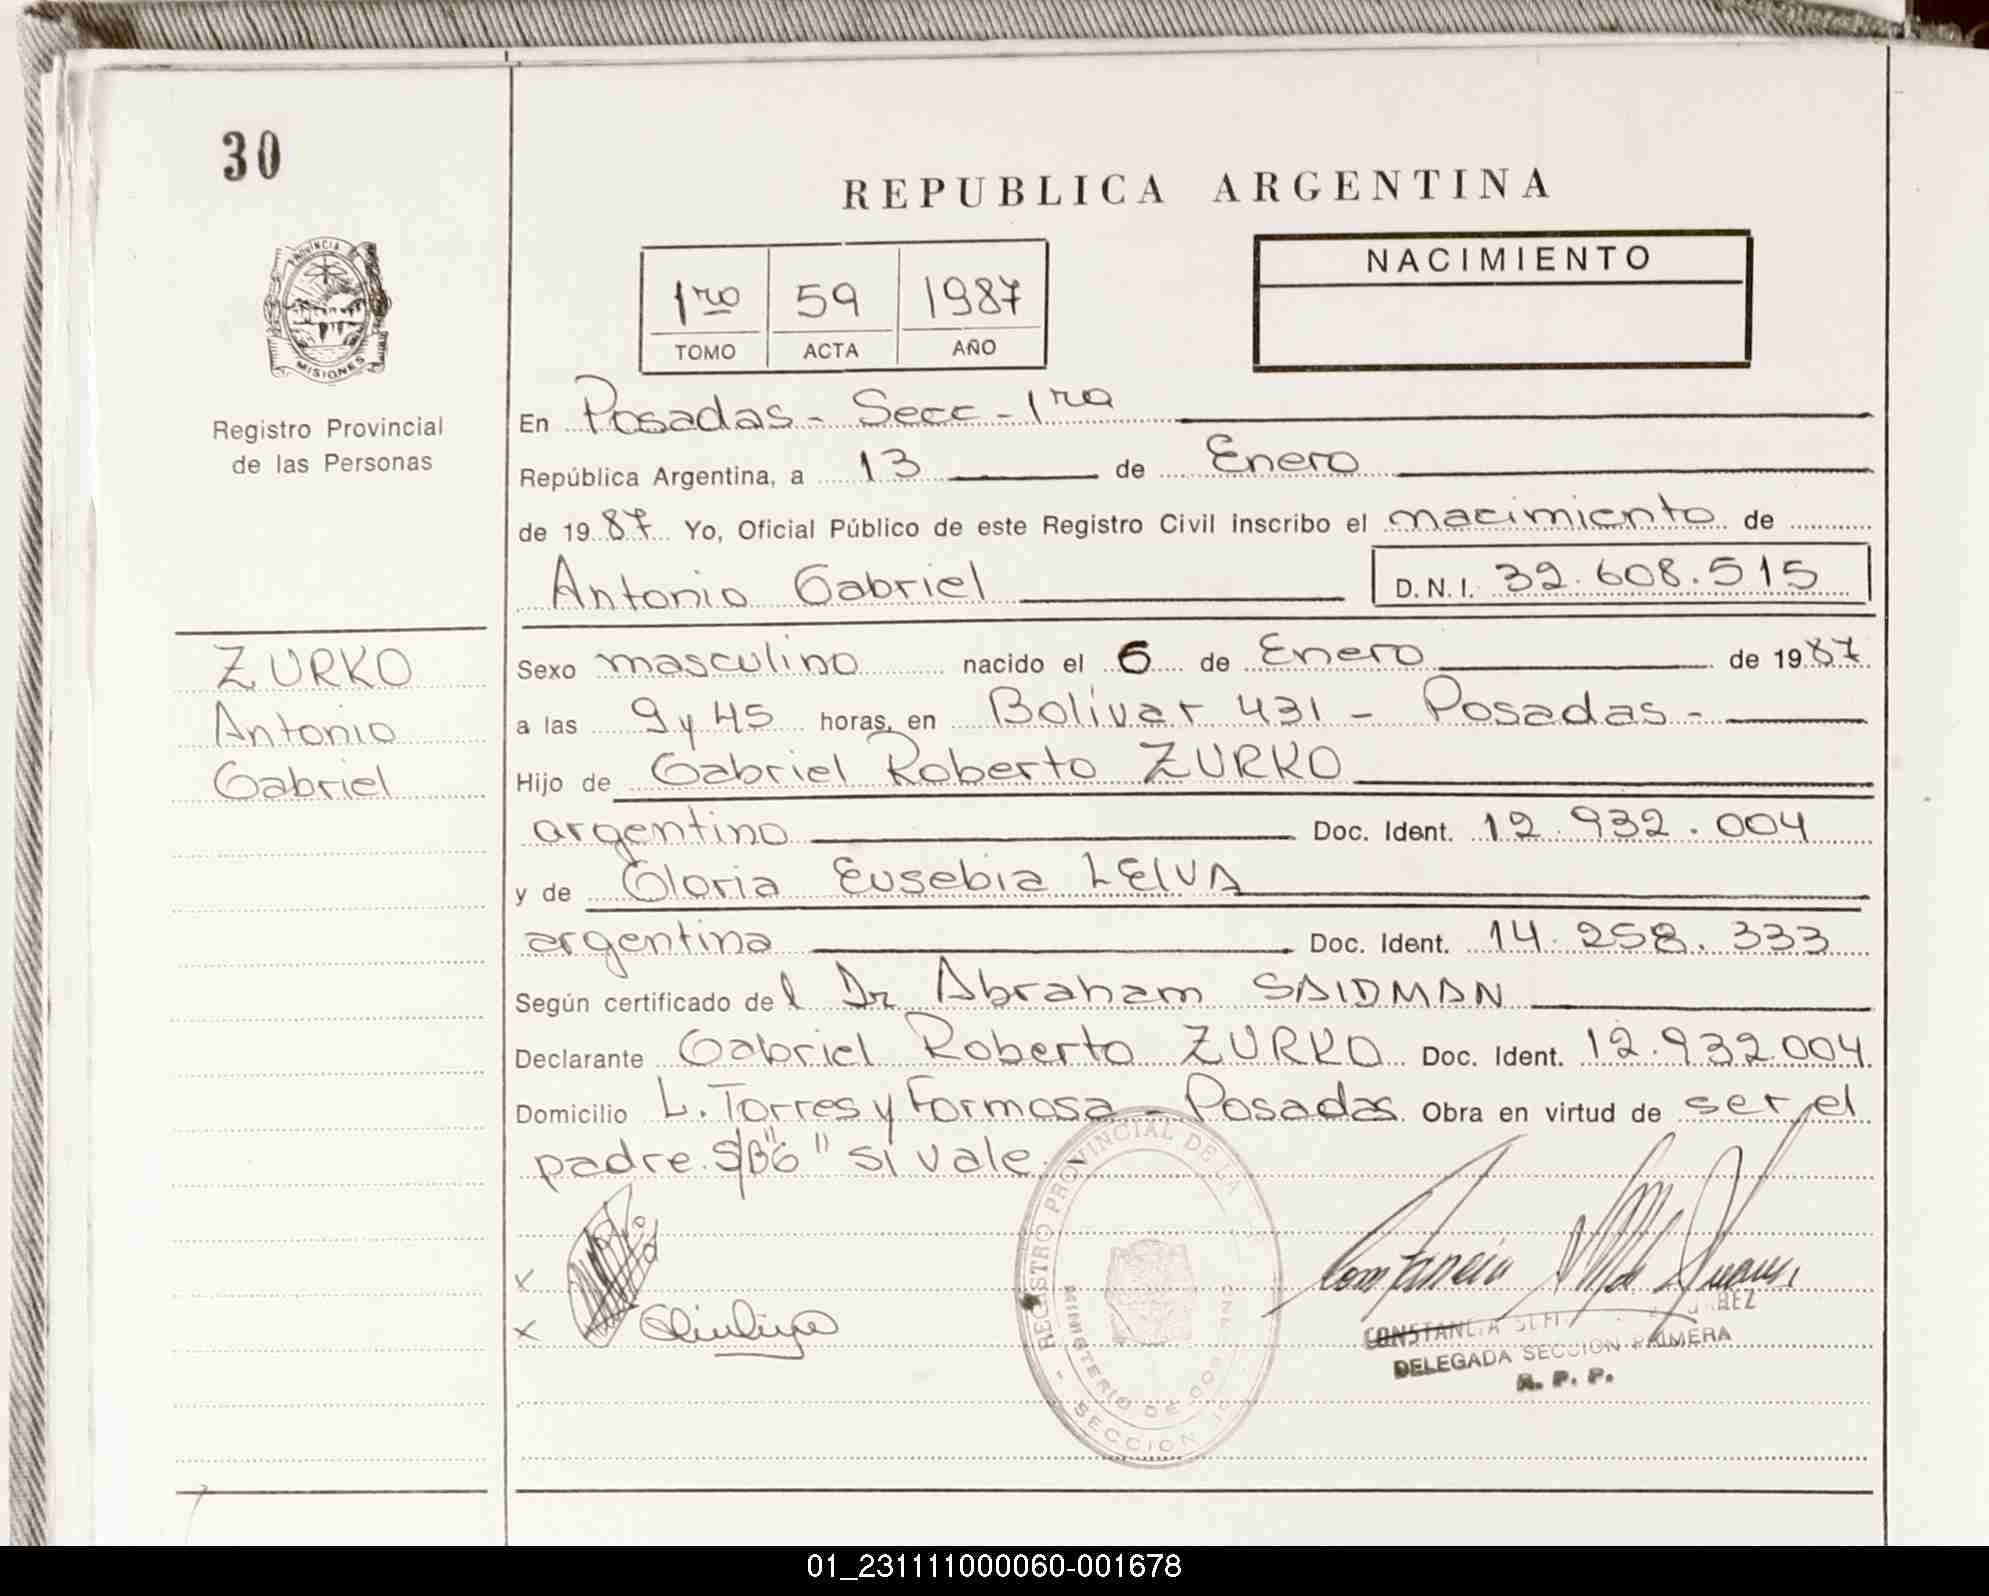 30
REPUBLICA ARGENTINA
NACIMIENTO
1ro 59 1987
TOMO ACTA AÑO
PROVINCIA
MISIONES
Registro Provincial
de las Personas
En Posadas - Secc - 1ra
República Argentina, a 13 de Enero
de 1987 Yo, Oficial Público de este Registro Civil inscribo el nacimiento de
Antonio Gabriel D.N.I. 32.608.515
ZURKO
Antonio
Gabriel
Sexo masculino nacido el 6 de Enero de 1987
a las 9 y 45 horas, en Bolívar 431 - Posadas -
Hijo de Gabriel Roberto ZURKO
argentino Doc. Ident. 12.932.004
y de Gloria Eusebia LEIVA
argentina Doc. Ident. 14.258.333
Según certificado del Dr Abraham SAIDMAN
Declarante Gabriel Roberto ZURKO Doc. Ident. 12.932.004
Domicilio L. Torres y Formosa - Posadas Obra en virtud de ser el
padre. S/B "6" si vale. -
REGISTRO PROVINCIAL DE LA
MINISTERIO DE GOB
SECCION 1
x
x
Constancia
CONSTANCIA
DELEGADA SECCION PRIMERA
R. P. P.
01_231111000060-001678